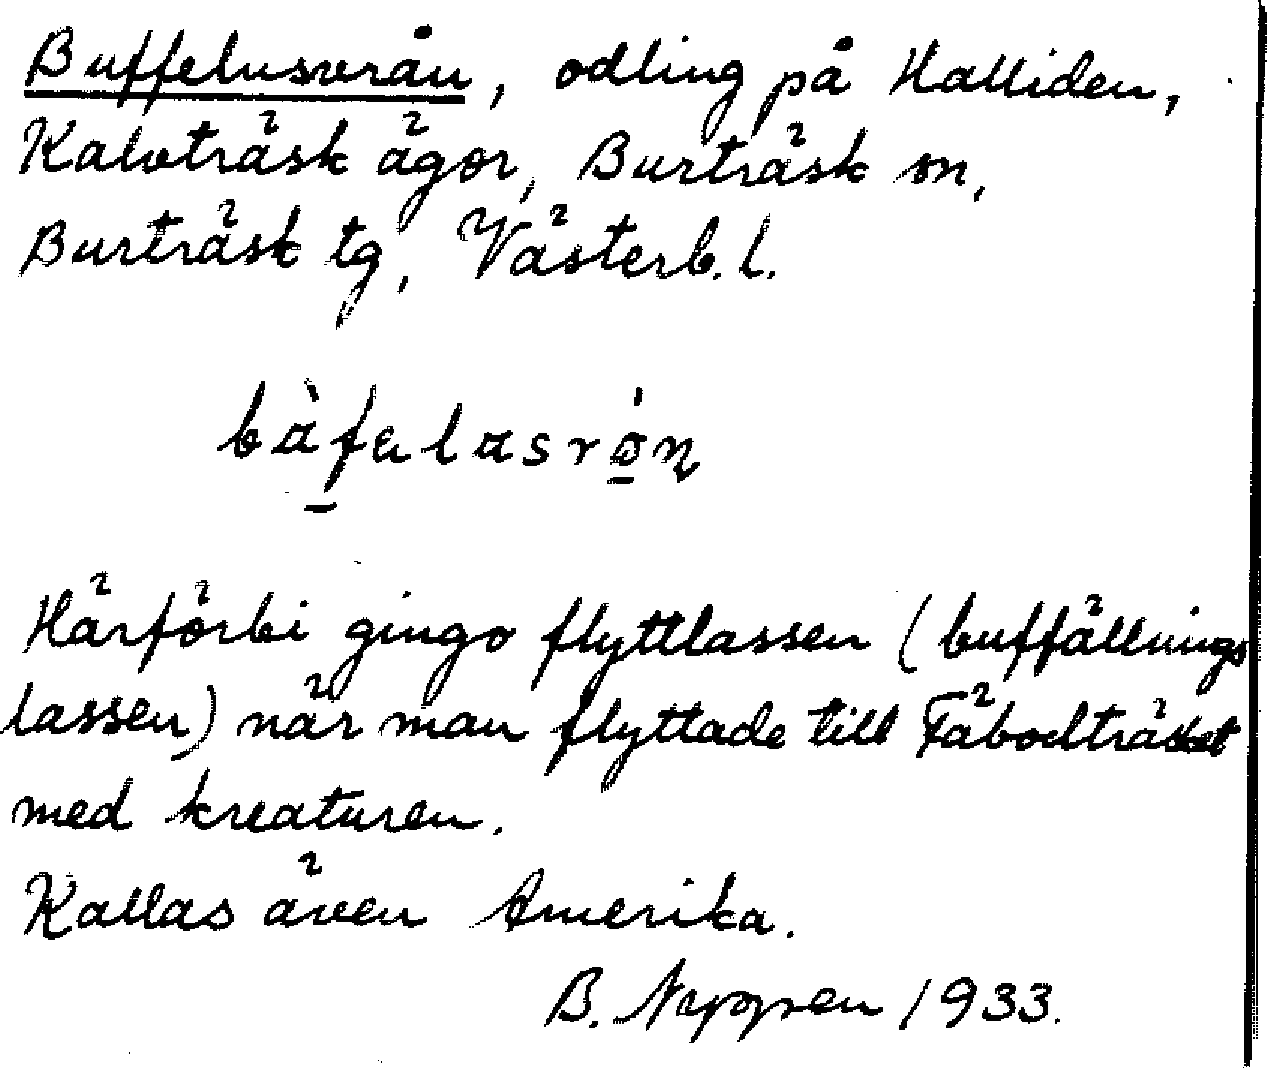 Buffelusvrån, odling på Halliden,
Kalvträsk ägor, Burträsk sn,
Burträsk tg, Västerb. l.
bàfalasrón
Härförbi gingo flyttlassen (buffällnings
lassen) när man flyttade till Fäbodträsket
med kreaturen.
Kallas även Amerika.
B. Nygren 1933.